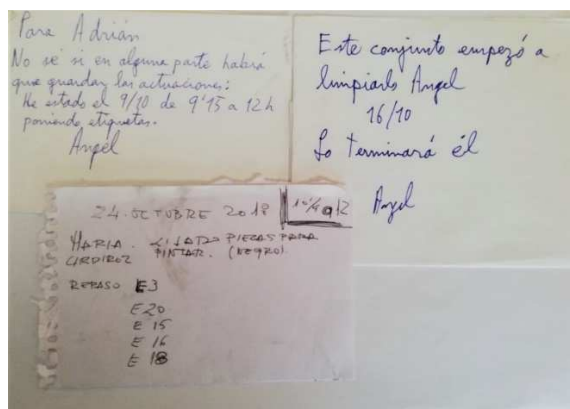 Para Adrián
No sé si en alguna parte habrá
que guardar las actuaciones:
He estado el 9/10 de 9'15 a 12h
poniendo etiquetas.
Angel
Este conjunto empezó a
limpiarlo Angel
16/10
Lo terminará él
Angel
24. OCTUBRE 2018
MARIA. LIJATO PIEZAS PARA
PINTAR. (NEGRO).
REPASO E3
E 20
E 15
E 16
E 18